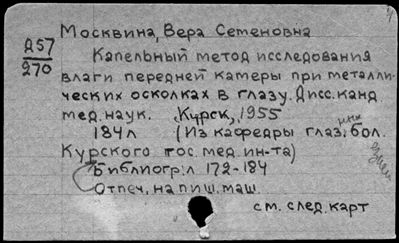 Москвина, Вера Семеновна
Д57
270
Капельный метод исследования
влаги передней камеры при металли-
ческих осколках в глазу. Дисс. канд
мед. наук. Курск, 1955
184л (Из кафедры глазных бол.
Курского гос. мед. ин-та)
Библиогр: л 172-184
Отпеч. на пиш. маш.
см. след. карт